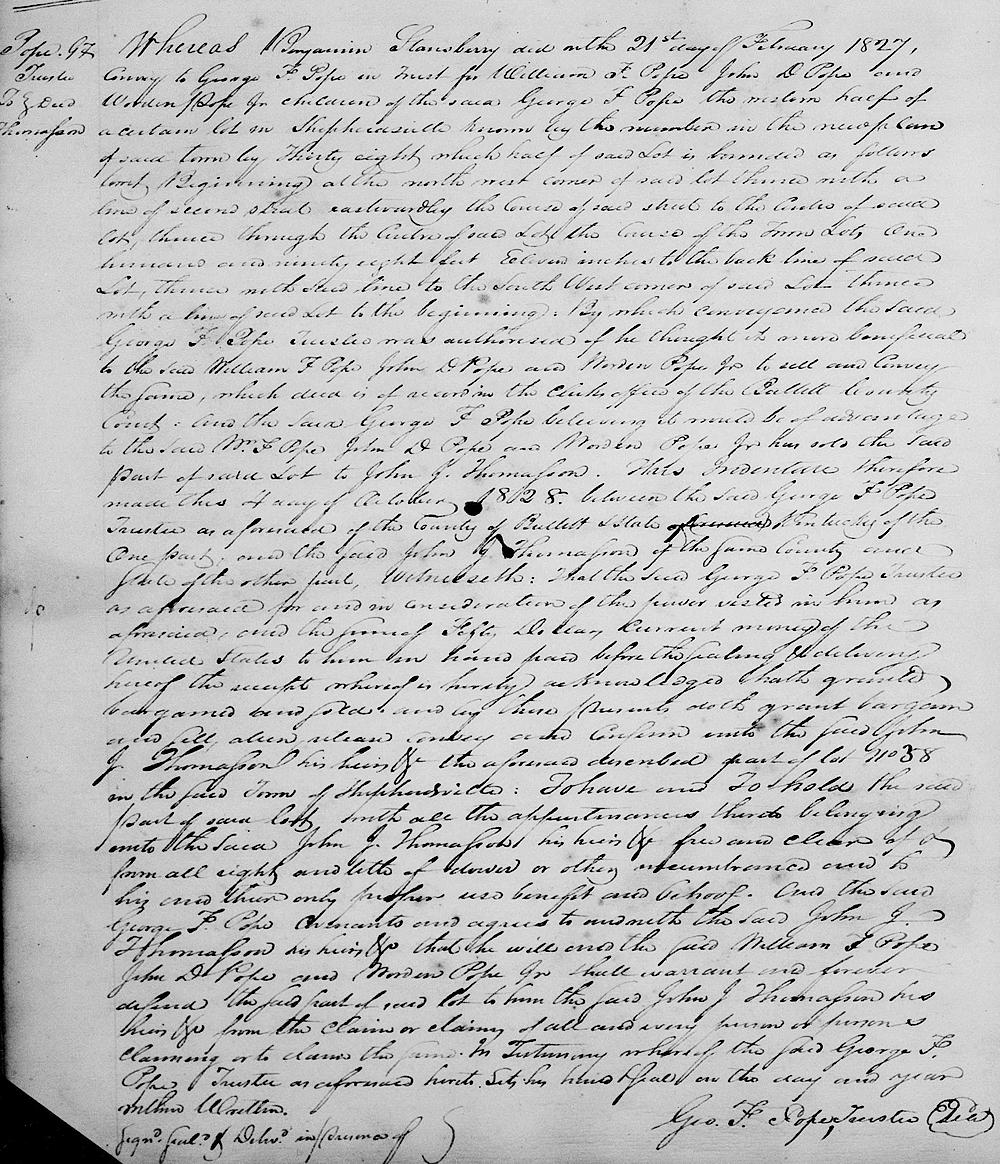 Pope. G F
Trustee
To } Deed
Thomasson
Whereas Benjamin Stansberry did on the 21st day of February 1827,
Convey to George F Pope in Trust for William F. Pope John D Pope and
Worden Pope Jr children of the said George F Pope the western half of
a certain lot in Shepherdsville known by the number in the new plan
of said town by Thirty eight which half of said Lot is bounded as follows
towit, Begining at the north west corner of said lot thence with a
line of second street eastwardly the course of said street to the Centre of said
lot, thence through the Centre of said Lot, the Course of the Town Lots, One
hundred and ninety eight feet Eleven inches to the back line of said
Lot, thence with said line to the South West corner of said Lot thence
with a line of said Lot to the beginning: By which conveyance the said
George F. Pope Trustee was authorised if he thought it more beneficial
to the said William F Pope John D Pope and Worden Pope Jr to sell and Convey
the same, which deed is of record in the Clerks office of the Bullitt County
Court: and the said George F Pope believing it would be of advantage
to the said Wm F Pope John D Pope and Worden Pope Jr has sold the said
part of said Lot to John J. Thomasson. This Indenture therefore
made this 4 day of October 1828. between the said George F Pope
Trustee as aforesaid of the County of Bullitt & State of Kentucky of the
One part; and the said John J Thomasson of the same County and
State of the other part, Witnesseth: That the said George F Pope Trustee
as aforesaid for and in consideration of the power vested in him as
aforesaid, and the sum of Dollars Current money of the
United States to him in hand paid before the sealing & delivery
hereof the receipt whereof is hereby acknowledged hath granted
bargained and sold and by these presents doth grant bargain
and sell, alien release convey and Confirm unto the said John
J. Thomasson his heirs &c the aforesaid described part of lot No 38
in the said Town of Shepherdsville: To have and To hold the said
part of said lot, with all the appurtinances thereto belonging
unto the said John J. Thomasson his heirs &c free and clear of &
from all right and title of dower or other incumbrance and to
his and their only proper use benefit and behoof. And the said
George F. Pope Covenants and agrees to and with the said John J
Thomasson his heirs &c that he will and the said William F Pope
John D Pope and Worden Pope Jr shall warrant and forever
defend the said part of said lot to him the said John J Thomasson his
heirs &c from the claim or claims of all and every person or persons
claiming or to claim the same. In Testimony whereof the said George F.
Pope Trustee as aforesaid hereto sets his hand & seal on the day and year
within Written.
Geo. F. Pope, Trustee (Seal)
Signd. Seald. & Delivd. in presence of }